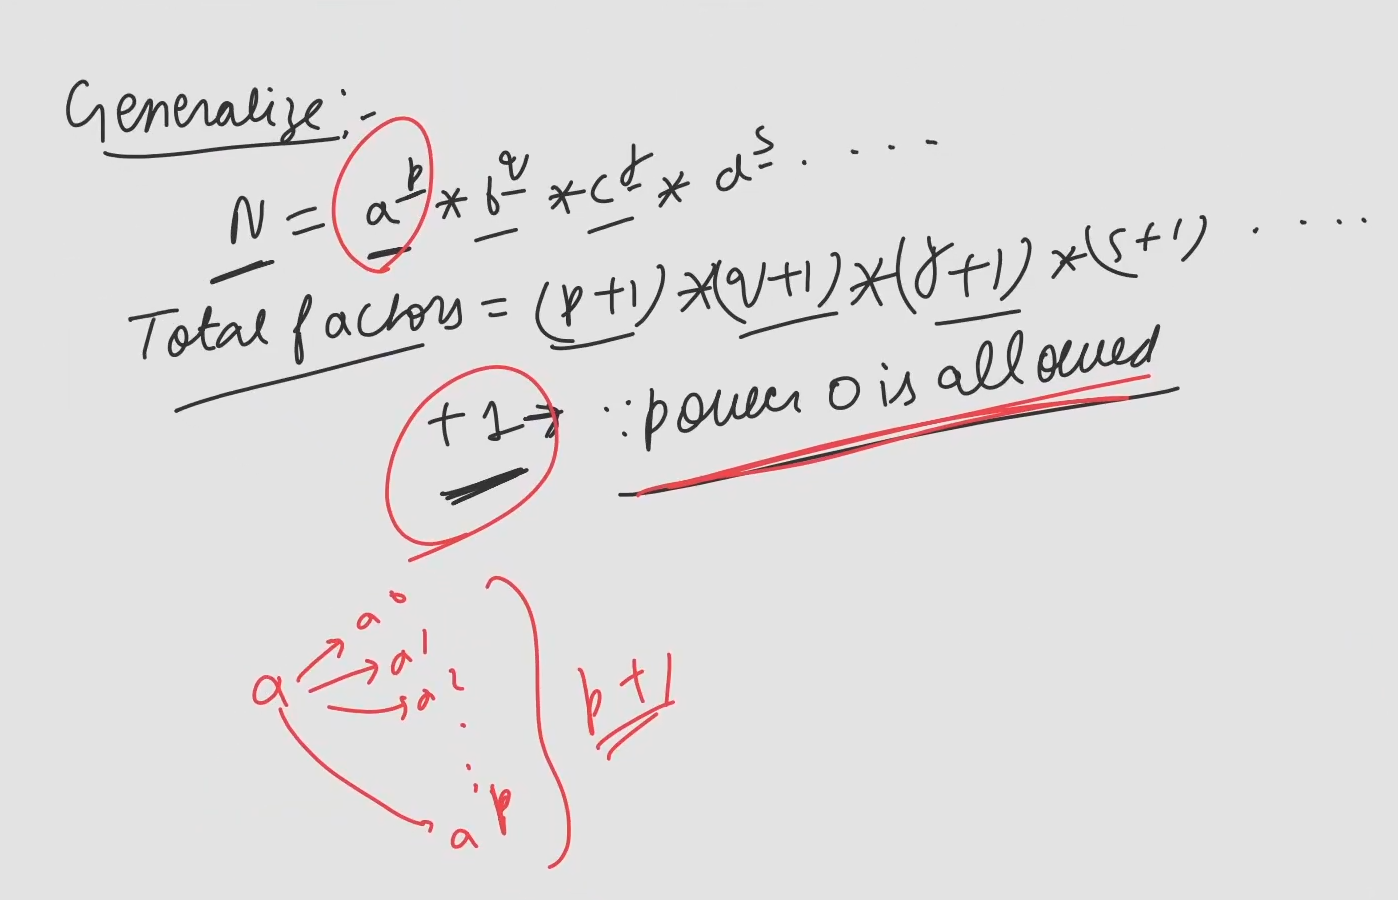 Generalize:-
N = a^p * b^q * c^r * d^s . . . . .
Total factors = (p+1) * (q+1) * (r+1) * (s+1) . . . . .
+1 → ∵ power 0 is allowed
a → a^0
→ a^1
→ a^2
:
:
→ a^p
p+1